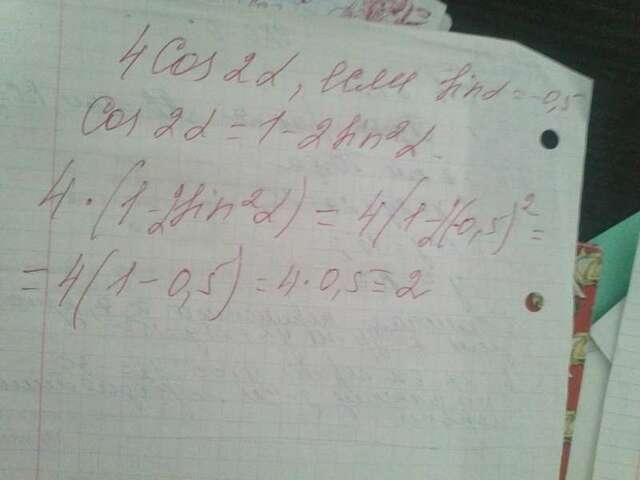 4 cos 2α, если sin α = -0,5
cos 2α = 1 - 2 sin² α
4 · (1 - 2 sin² α) = 4(1 - 2(-0,5)² =
= 4(1 - 0,5) = 4 · 0,5 = 2